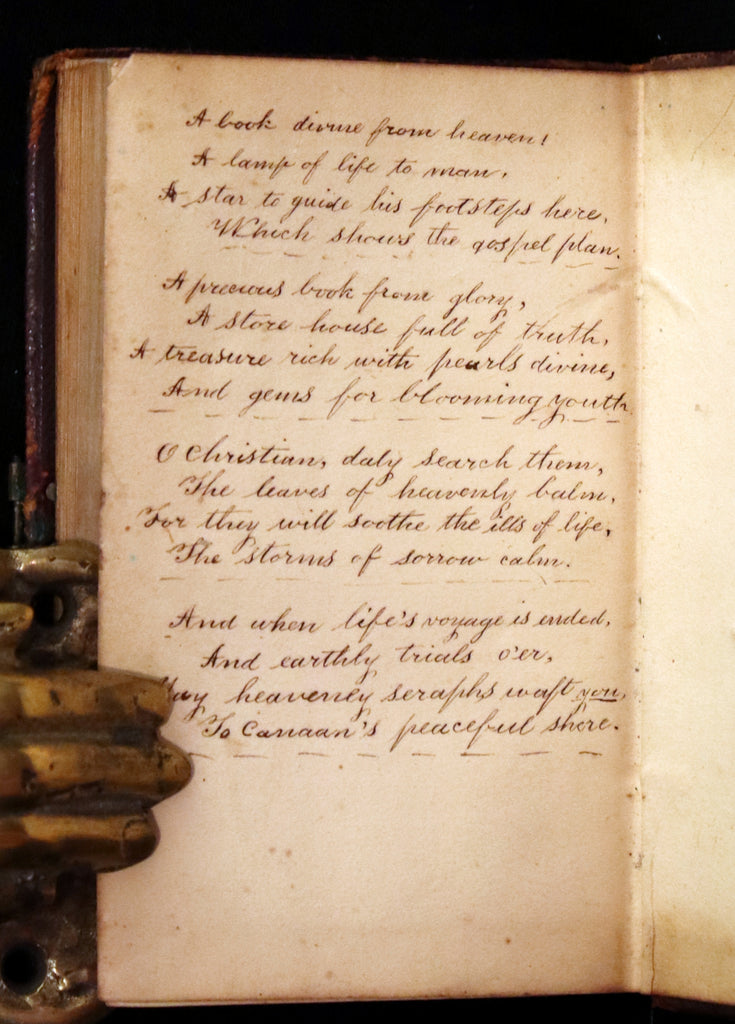 A book divine from heaven!
A lamp of life to man,
A star to guide his footsteps here,
Which shows the gospel plan.
A precious book from glory,
A store house full of truth,
A treasure rich with pearls divine,
And gems for blooming youth
O Christian, daly search them,
The leaves of heavenly balm,
For they will soothe the ills of life,
The storms of sorrow calm.
And when life's voyage is ended,
And earthly trials o'er,
May heavenley seraphs waft you,
To Canaan's peaceful shore.